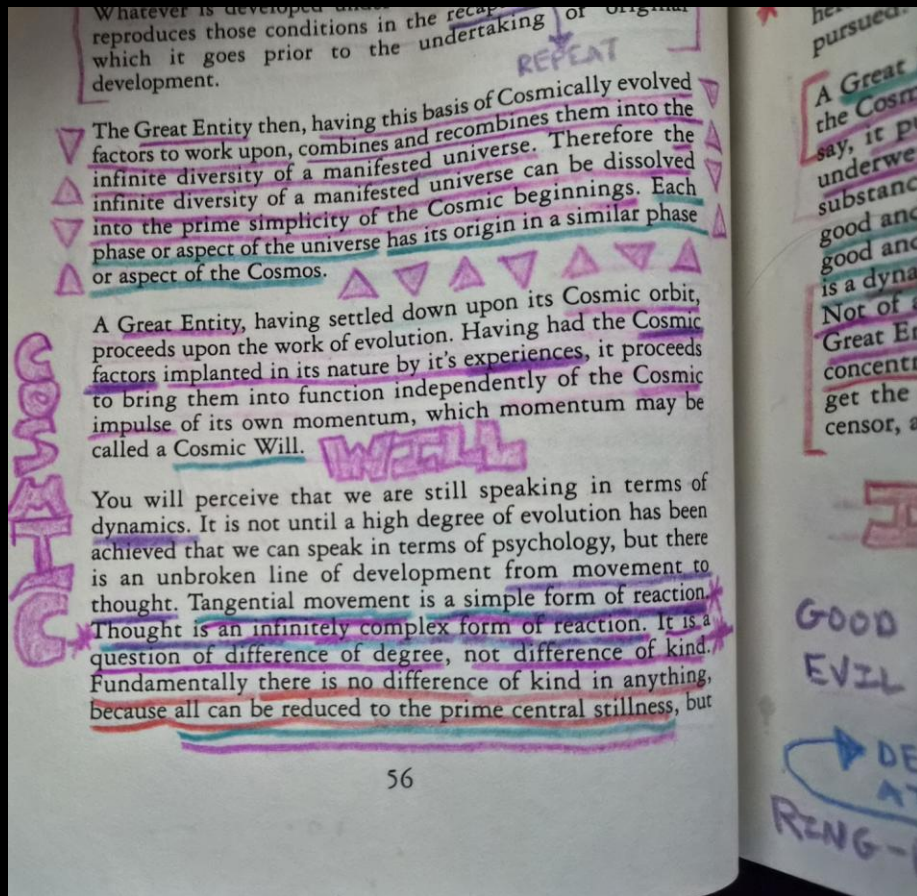 Whatever is developed
reproduces those conditions in the
which it goes prior to the undertaking of original
development.
REPEAT
The Great Entity then, having this basis of Cosmically evolved
factors to work upon, combines and recombines them into the
infinite diversity of a manifested universe. Therefore the
infinite diversity of a manifested universe can be dissolved
into the prime simplicity of the Cosmic beginnings. Each
phase or aspect of the universe has its origin in a similar phase
or aspect of the Cosmos.
A Great Entity, having settled down upon its Cosmic orbit,
proceeds upon the work of evolution. Having had the Cosmic
factors implanted in its nature by it's experiences, it proceeds
to bring them into function independently of the Cosmic
impulse of its own momentum, which momentum may be
called a Cosmic Will.
WILL
COSMIC
You will perceive that we are still speaking in terms of
dynamics. It is not until a high degree of evolution has been
achieved that we can speak in terms of psychology, but there
is an unbroken line of development from movement to
thought. Tangential movement is a simple form of reaction.
Thought is an infinitely complex form of reaction. It is a
question of difference of degree, not difference of kind.
Fundamentally there is no difference of kind in anything,
because all can be reduced to the prime central stillness, but
56
pursued.
A Great
the Cosm
say, it p
underwe
substanc
good and
good and
is a dyna
Not of
Great En
concentr
get the
censor, a
GOOD
EVIL
DE
AT
RING-